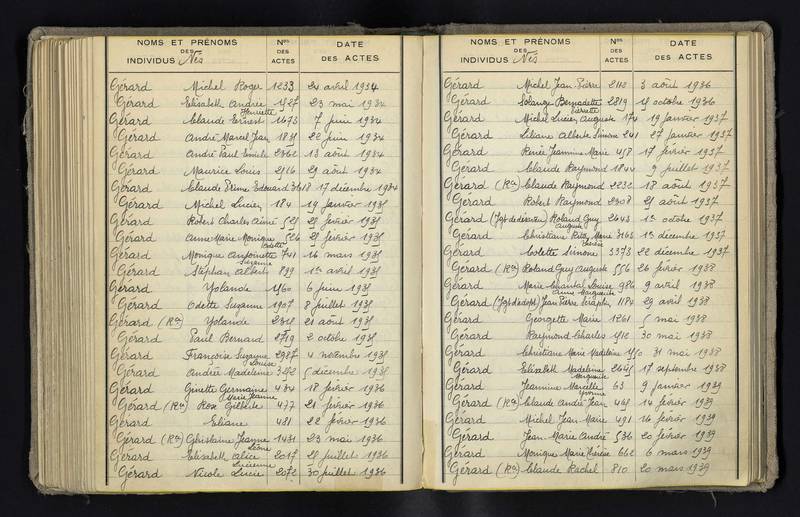 NOMS ET PRÉNOMS
DES
INDIVIDUS Nés
Nos
DES
ACTES
DATE
DES ACTES
Gérard Michel Roger 1233 24 avril 1934
Gérard Elisabeth Andrée 1527 23 mai 1934
Henriette
Gérard Claude Ernest 1673 7 juin 1934
Gérard André Marcel Jean 1831 22 juin 1934
Gérard André Paul Emile 2362 13 août 1934
Gérard Maurice Louis 2516 29 août 1934
Gérard Claude Pierre Edouard 3618 17 décembre 1934
Gérard Michel Lucien 184 19 janvier 1935
Gérard Robert Charles Aimé 525 25 février 1935
Gérard Anne Marie Monique 526 25 février 1935
Odette
Gérard Monique Antoinette 741 16 mars 1935
Suzanne
Gérard Stéphan Albert 899 1er avril 1935
Gérard Yolande 1560 6 juin 1935
Gérard Odette Suzanne 1907 8 juillet 1935
Gérard (Ron) Yolande 2325 21 août 1935
Gérard Paul Bernard 2719 2 octobre 1935
Gérard Françoise Suzanne 2987 4 novembre 1935
Louise
Gérard André Madeleine 3272 5 décembre 1935
Gérard Ginette Germaine 434 18 février 1936
Marie Jeanne
Gérard (Ron) Rose Gilberte 477 21 février 1936
Gérard Eliane 481 22 février 1936
Gérard (Ron) Ghislaine Jeanne 1431 23 mai 1936
Léone
Gérard Elisabeth Alice 2017 25 juillet 1936
Lucienne
Gérard Nicole Lucie 2072 30 juillet 1936
NOMS ET PRÉNOMS
DES
INDIVIDUS Nés
Nos
DES
ACTES
DATE
DES ACTES
Gérard Michel Jean Pierre 2110 3 août 1936
Gérard Solange Bernadette 2819 15 octobre 1936
Pierrette
Gérard Michel Lucien Auguste 174 19 janvier 1937
Gérard Liliane Alberte Simone 241 27 janvier 1937
Gérard Renée Jeannine Marie 458 17 février 1937
Gérard Claude Raymond 1844 9 juillet 1937
Gérard (Ron) Claude Raymond 2232 18 août 1937
Gérard Robert Raymond 2308 25 août 1937
Gérard (Jgt de désaveu) Roland Guy 2643 1er octobre 1937
Auguste
Gérard Christiane Rita Marie 3163 1er décembre 1937
Thérèse
Gérard Colette Simone 3373 22 décembre 1937
Gérard (Ron) Roland Guy Auguste 556 26 février 1938
Gérard Marie Chantal Louise 986 9 avril 1938
Anne Marguerite
Gérard (Jgt d'adopt) Jean Pierre Séraphin 1184 29 avril 1938
Gérard Georgette Marie 1261 5 mai 1938
Gérard Raymond Charles 1512 30 mai 1938
Gérard Christiane Marie Madeleine 1550 31 mai 1938
Gérard Elisabeth Madeleine 2645 17 septembre 1938
Marguerite
Gérard Jeannine Marcelle 63 9 janvier 1939
Yvonne
Gérard (Ron) Claude André Jean 465 14 février 1939
Gérard Michel Jean Marie 491 16 février 1939
Gérard Jean-Marie André 536 20 février 1939
Gérard Monique Marie Thérèse 662 6 mars 1939
Gérard (Ron) Claude Rachel 810 20 mars 1939